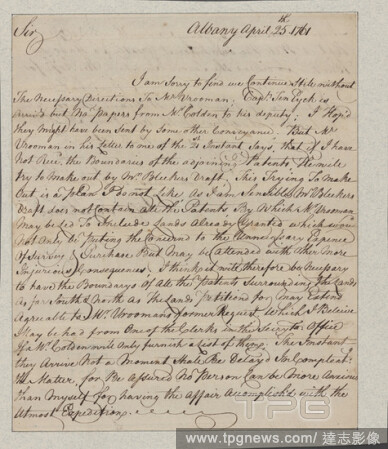 Sir Albany April 25th. 1761
I am Sorry to find we Continue Still without
The Necessary Directions To Mr Vrooman; Capt. Ten Eyck is
arriv'd but No Papers from Mr Colden to his deputy; I Hop'd
they might have been Sent by Some other Conveyance. But Mr
Vrooman in his Letter to me of the Instant Says, that if I have
Not Recd. the Boundaries of the adjoining Patents He will
try to Make out by Mr Bleekers Draft. This Trying To Make
Out is a plan I Do not Like as I am Sensible Mr Bleekers
Draft does not Contain all the Patents, By Which Mr Vrooman
May be Led To Include Lands Already Granted which would
Not Only be putting the Concern'd to the Unnecessary Expence
of Survey & Purchase But May be attended with other More
Injurious Consequences. I think it will therefore be Necessary
to have the Boundarys of all the Patents Surrounding the Lands
as far South & North as the Lands Petition'd for, may Extend
Agreeable to Mr Vroomans former Request, Which I Believe
May be had from One of the Clerks in the Secrys. Office
if Mr Colden will Only furnish a List of them. The Instant
they Arrive Not a Moment Shall be Delay'd to Compleat
the Matter, for Be Assured No Person Can be More Anxious
than Myself for having the Affair Accomplish'd with the
Utmost Expedition.
TPG
www.tpgnews.com / 達志影像